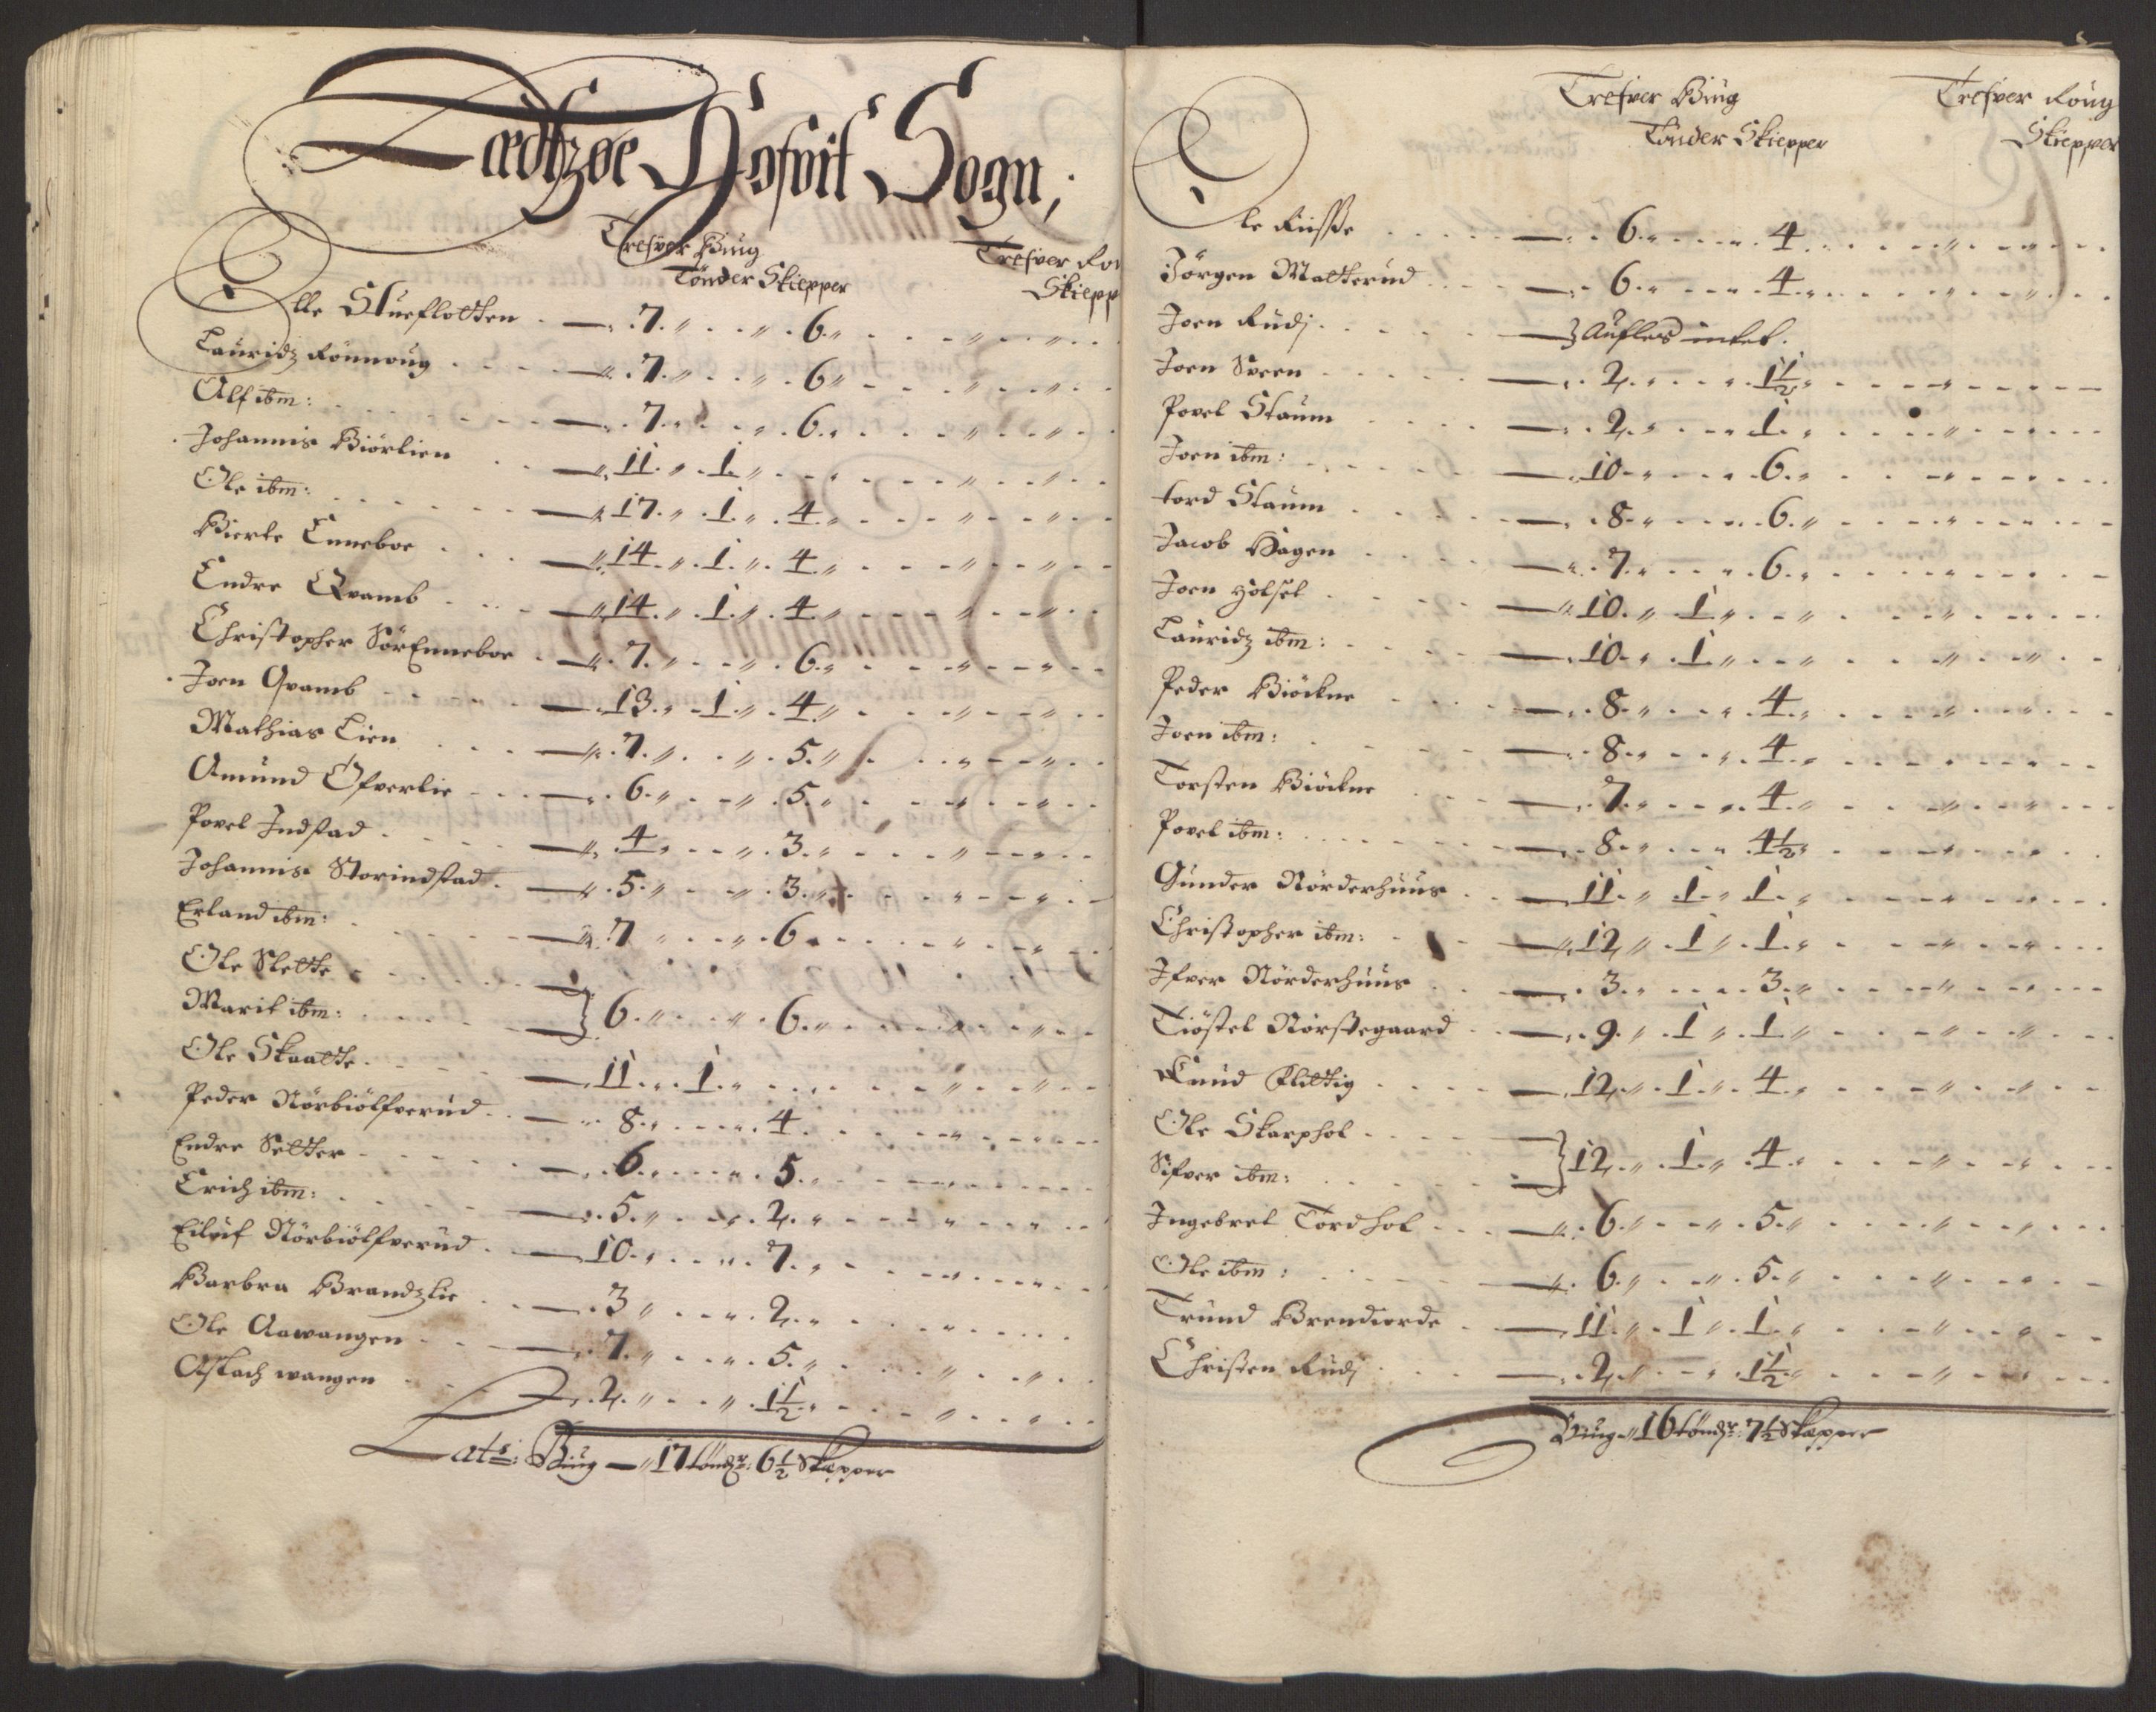 Lædtzøe Hofvit Sogn;
Tresver Biug Tresver Ro
Tönder Skiepper Skiepp
Olle Stueflotten 7 6
Lauridz Rönnoug 7 6
Alf ibm: 7 6
Johannis Biörlien 11 1
Ole ibm: 17 1 4
Bierte Enneboe 14 1 4
Endre Qvamb 14 1 4
Christopher SörEnneboe 7 6
Joen Qvamb 13 1 4
Mathias Lien 7 5
Amund Öfverlie 6 5
Povel Indstad 4 3
Johannis Storindstad 5 3
Erland ibm: 7 6
Ole Slette
Marit ibm: } 6 6
Ole Skaatte 11 1
Peder Nörbiölfverud 8 4
Endre Setter 6 5
Erich ibm: 5 2
Eiluf Nörbiölfverud 10 7
Barbra Brandzlie 3 2
Ole Aawangen 7 5
Aslach wangen 2 1½
Lats: Biug 17 töndr: 6½ Skæpper
Tresver Biug Tresver Roug
Tönder Skiepper Skiepper
Ole 6 4
Jörgen Matterud 6 4
Joen Rudj } Aufled intet.
Joen Sveen 2 1½
Povel Staum 2 1
Joen ibm: 10 6
tord Staum 8 6
Jacob Hagen 7 6
Joen Holset 10 1
Lauridz ibm: 10 1
Peder Biöckne 8 4
Joen ibm: 8 4
Torsten Biöckne 7 4
Povel ibm: 8 4½
Gunder Nörderhuus 11 1 1
Christopher ibm: 12 1 1
Ifver Nörderhuus 3 3
Tiöstel Nörstegaard 9 1 1
Knud Klettig 12 1 4
Ole Skarphol
Sifver ibm: } 12 1 4
Ingebret Tordhol 6 5
Ole ibm: 6 5
Trund Brendiorde 11 1 1
Christen Rudj 2 1½
Biug 16 töndr: 7½ Skæpper